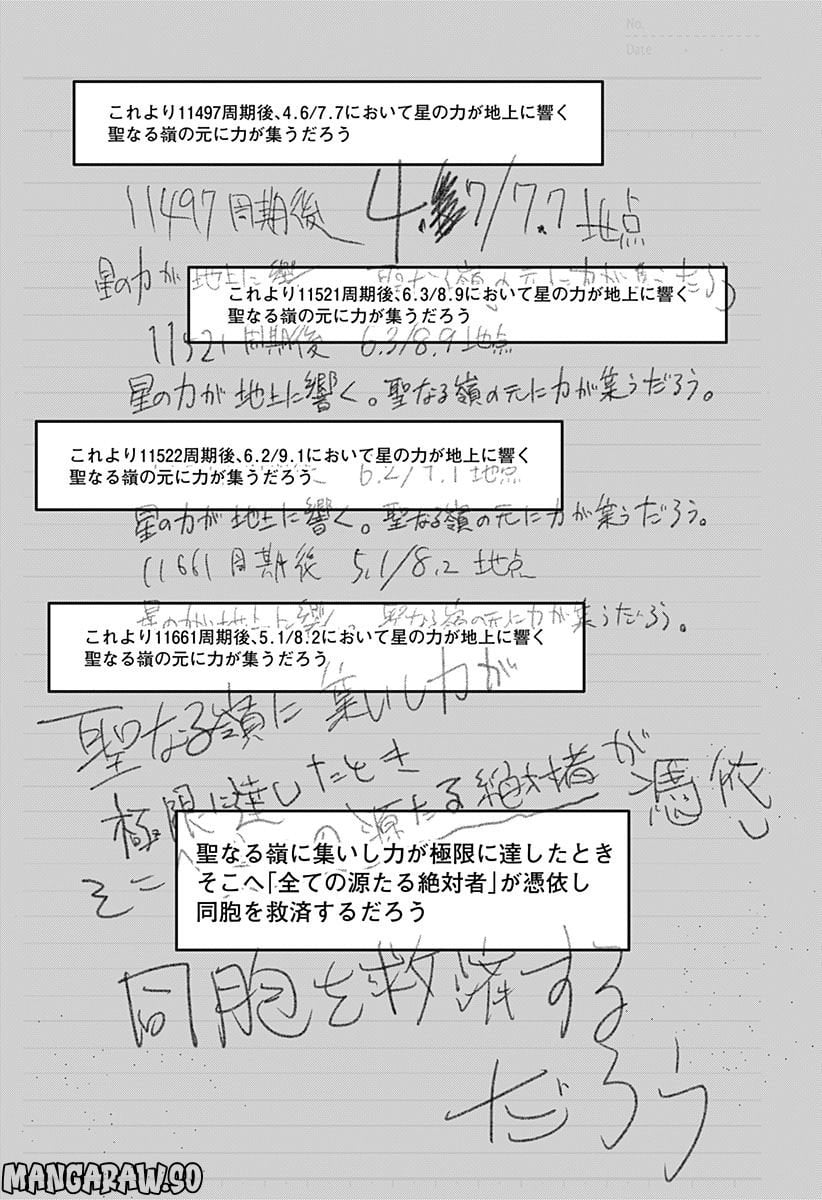 No.
Date
これより11497周期後、4.6/7.7において星の力が地上に響く
聖なる嶺の元に力が集うだろう
11497周期後 4. 7/7.7 地点
星の力が地上に響 聖なる嶺の元に力が集うだろう
これより11521周期後、6.3/8.9において星の力が地上に響く
聖なる嶺の元に力が集うだろう
11521周期後 6.3/8.9地点
星の力が地上に響く。聖なる嶺の元に力が集うだろう。
これより11522周期後、6.2/9.1において星の力が地上に響く
聖なる嶺の元に力が集うだろう
6.2/7.1地点
星の力が地上に響く。聖なる嶺の元に力が集うだろう。
11661周期後 5.1/8.2 地点
星の力が地上に響 聖なる嶺の元に力が集うだろう。
これより11661周期後、5.1/8.2において星の力が地上に響く
聖なる嶺の元に力が集うだろう
聖なる嶺に集いし力が
極限に達したとき
そこへ の源たる絶対者が憑依し
聖なる嶺に集いし力が極限に達したとき
そこへ「全ての源たる絶対者」が憑依し
同胞を救済するだろう
同胞を救済する
だろう
MANGARAW.SO